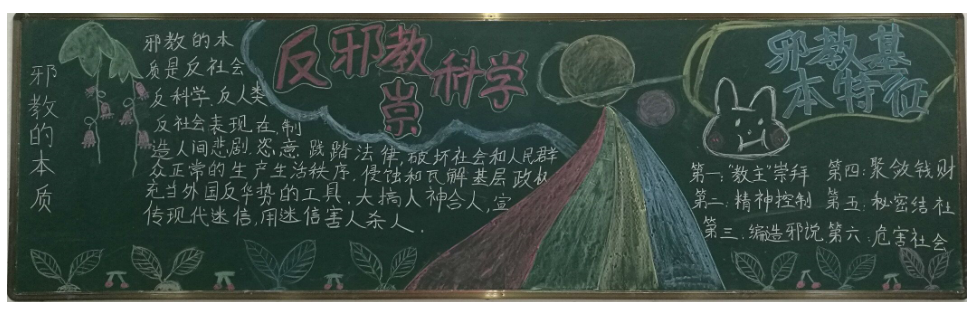 邪教的本质
邪教的本
质是反社会
反科学,反人类
反社会表现在,制
造人间悲剧,恣意践踏法律,破坏社会和人民群
众正常的生产生活秩序.侵蚀和瓦解基层政权
充当外国反华势的工具.大搞人神合人,宣
传现代迷信,用迷信害人杀人.
反邪教
崇科学
邪教基
本特征
第一:"教主"崇拜
第二:精神控制
第三.编造邪说
第四:聚敛钱财
第五:秘密结社
第六:危害社会